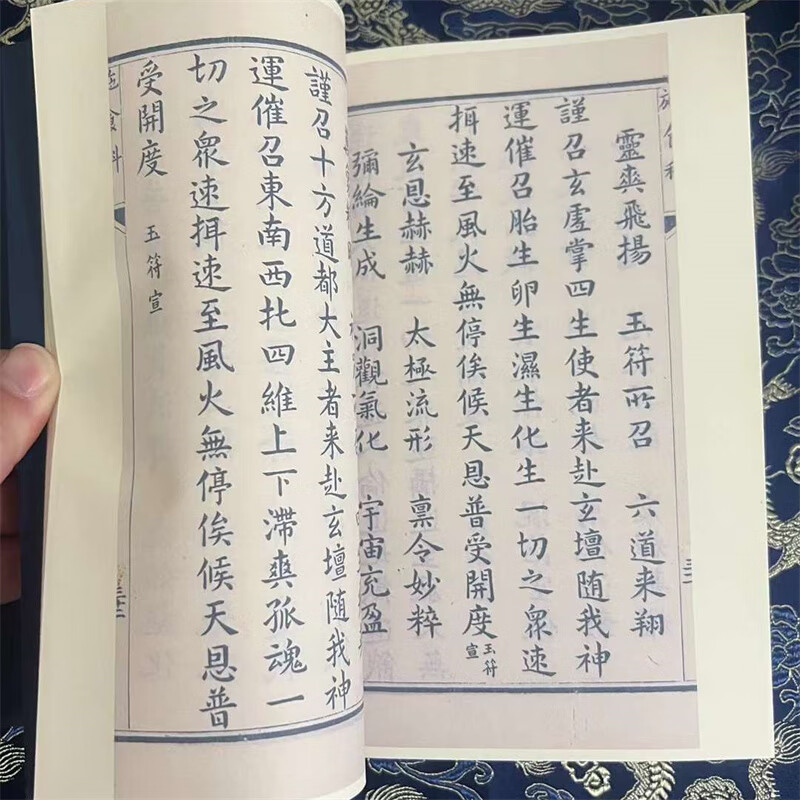 靈爽飛揚　玉符所召　六道来翔
謹召玄虛掌四生使者来赴玄壇随我神
運催召胎生卵生濕生化生一切之眾速
挕速至風火無停俟候天恩普受開度 玉符宣
玄恩赫赫　太極流形　禀令妙粹
彌綸生成　洞觀氣化　宇宙充盈
謹召十方道都大主者来赴玄壇随我神
運催召東南西北四維上下滯爽孤魂一
切之眾速挕速至風火無停俟候天恩普
受開度　玉符宣
食科